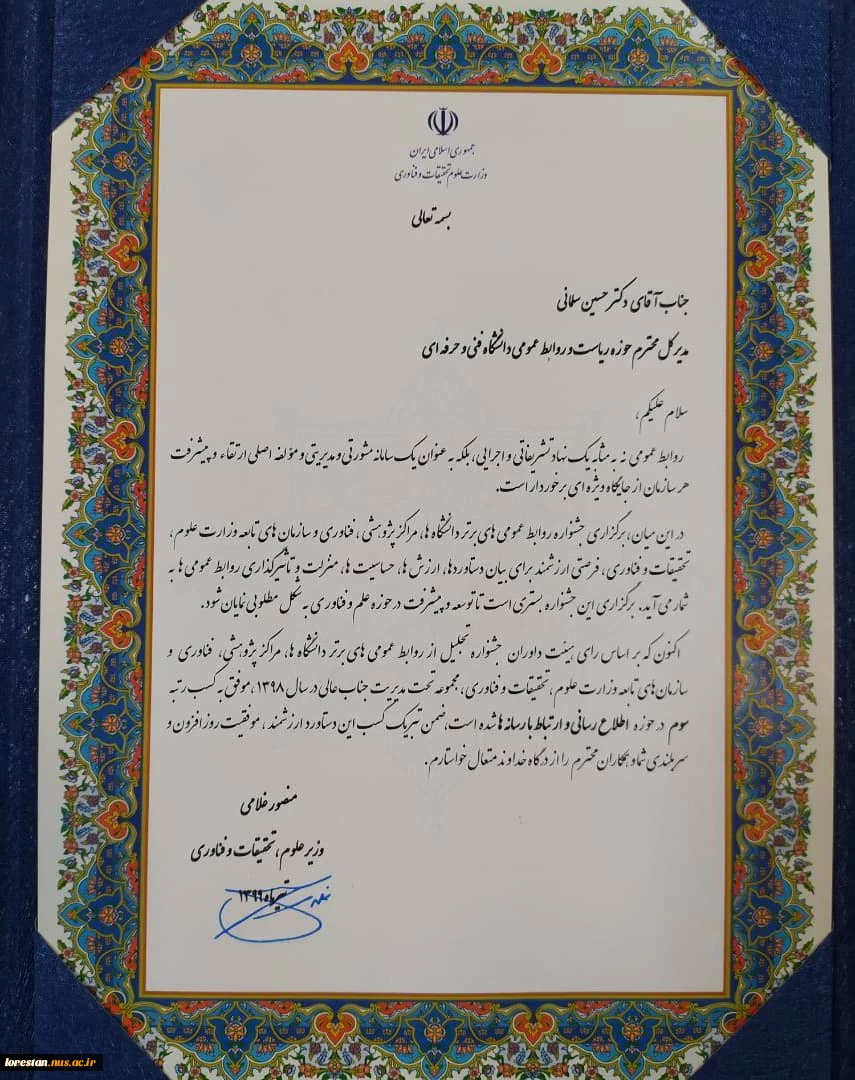 جمهوری اسلامی ایران
وزارت علوم تحقیقات و فناوری
بسمه تعالی
جناب آقای دکتر حسین سلمانی
مدیر کل محترم حوزه ریاست و روابط عمومی دانشگاه فنی و حرفه ای
سلام علیکم،
روابط عمومی نه به مثابه یک نهاد تشریفاتی و اجرایی، بلکه به عنوان یک سامانه مشورتی و مدیریتی و مؤلفه اصلی ارتقاء و پیشرفت
هر سازمان از جایگاه ویژه ای برخوردار است.
در این میان، برگزاری جشنواره روابط عمومی های برتر دانشگاه ها، مراکز پژوهشی، فناوری و سازمان های تابعه وزارت علوم،
تحقیقات و فناوری، فرصتی ارزشمند برای بیان دستاوردها، ارزش ها، حساسیت ها، منزلت و تأثیرگذاری روابط عمومی ها به
شمار می آید. برگزاری این جشنواره بستری است تا توسعه و پیشرفت در حوزه علم و فناوری به شکل مطلوبی نمایان شود.
اکنون که بر اساس رای هیئت داوران جشنواره تجلیل از روابط عمومی های برتر دانشگاه ها، مراکز پژوهشی، فناوری و
سازمان های تابعه وزارت علوم، تحقیقات و فناوری، مجموعه تحت مدیریت جناب عالی در سال ۱۳۹۸، موفق به کسب رتبه
سوم در حوزه اطلاع رسانی و ارتباط با رسانه ها شده است، ضمن تبریک کسب این دستاورد ارزشمند، موفقیت روز افزون و
سربلندی شما و همکاران محترم را از درگاه خداوند متعال خواستارم.
منصور غلامی
وزیر علوم، تحقیقات و فناوری
تیرماه ۱۳۹۹
lorestan.nus.ac.ir